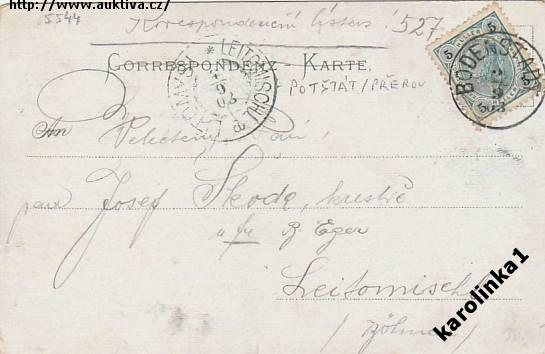 http://www.auktiva.cz/
5544
Korrespondenční lístek 527
CORRESPONDENZ - KARTE.
POTŠTÁT/PŘEROV
5 5
BODENSTADT
LEITOMISCHL
An Velectěný Pán
pan Josef Škoda,
u fy B. Eger
Leitomischl
/Böhmen/
karolinka1